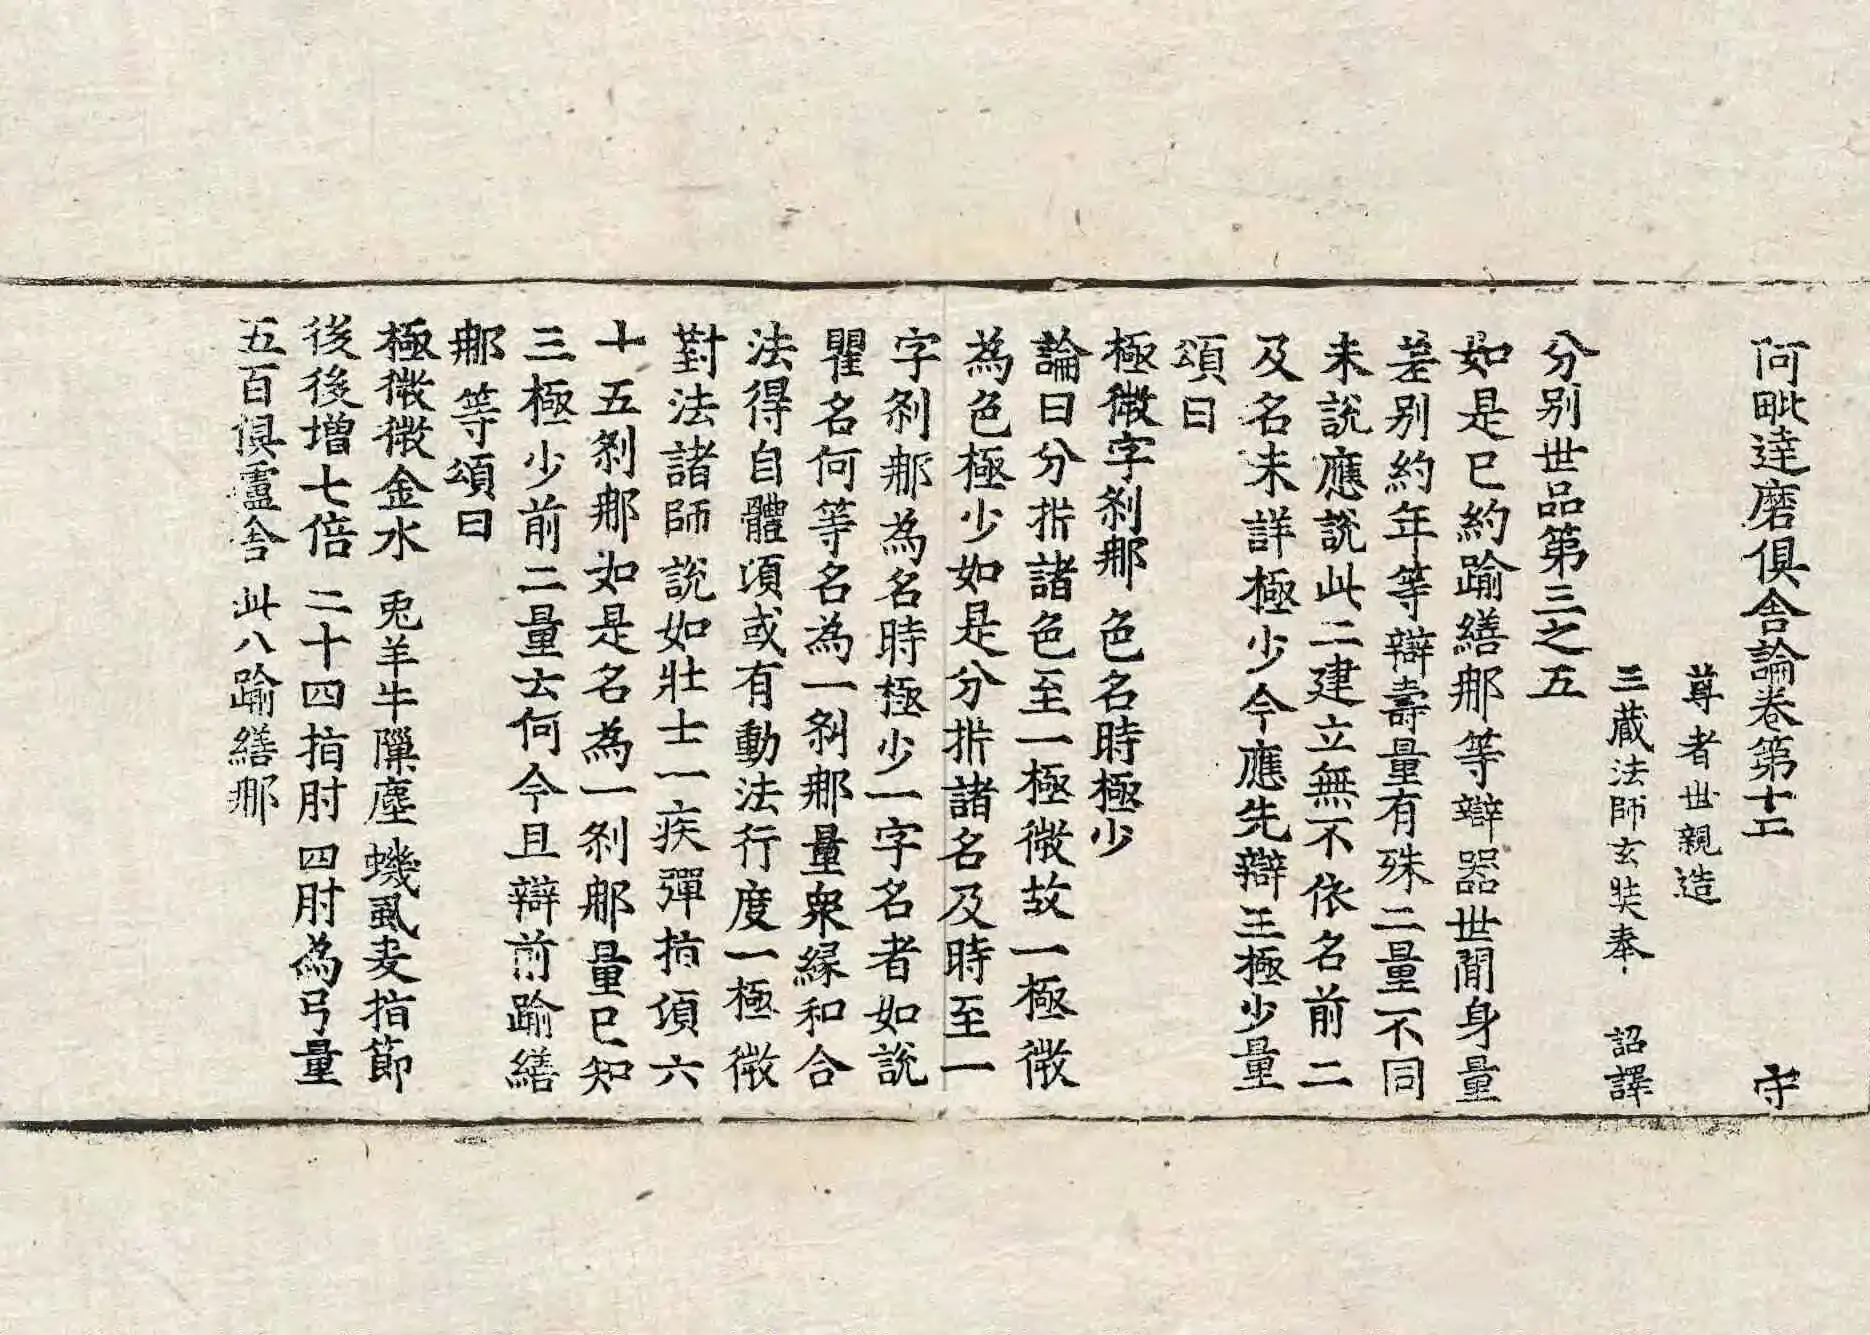 阿毗達磨俱舍論卷第十二 守
尊者世親造
三藏法師玄奘奉 詔譯
分别世品第三之五
如是已約踰繕那等辯器世間身量
差别約年等辯壽量有殊二量不同
未說應說此二建立無不依名前二
及名未詳極少今應先辯三極少量
頌曰
極微字刹那 色名時極少
論曰分㭊諸色至一極微故一極微
為色極少如是分㭊諸名及時至一
字刹那為名時極少一字名者如說
瞿名何等名為一刹那量衆緣和合
法得自體頃或有動法行度一極微
對法諸師說如壯士一疾彈指頃六
十五刹那如是名為一刹那量已知
三極少前二量云何今且辯前踰繕
那等頌曰
極微微金水 兎羊牛隟塵 蟣虱麦指節
後後增七倍 二十四指肘 四肘為弓量
五百俱盧舍 此八踰繕那